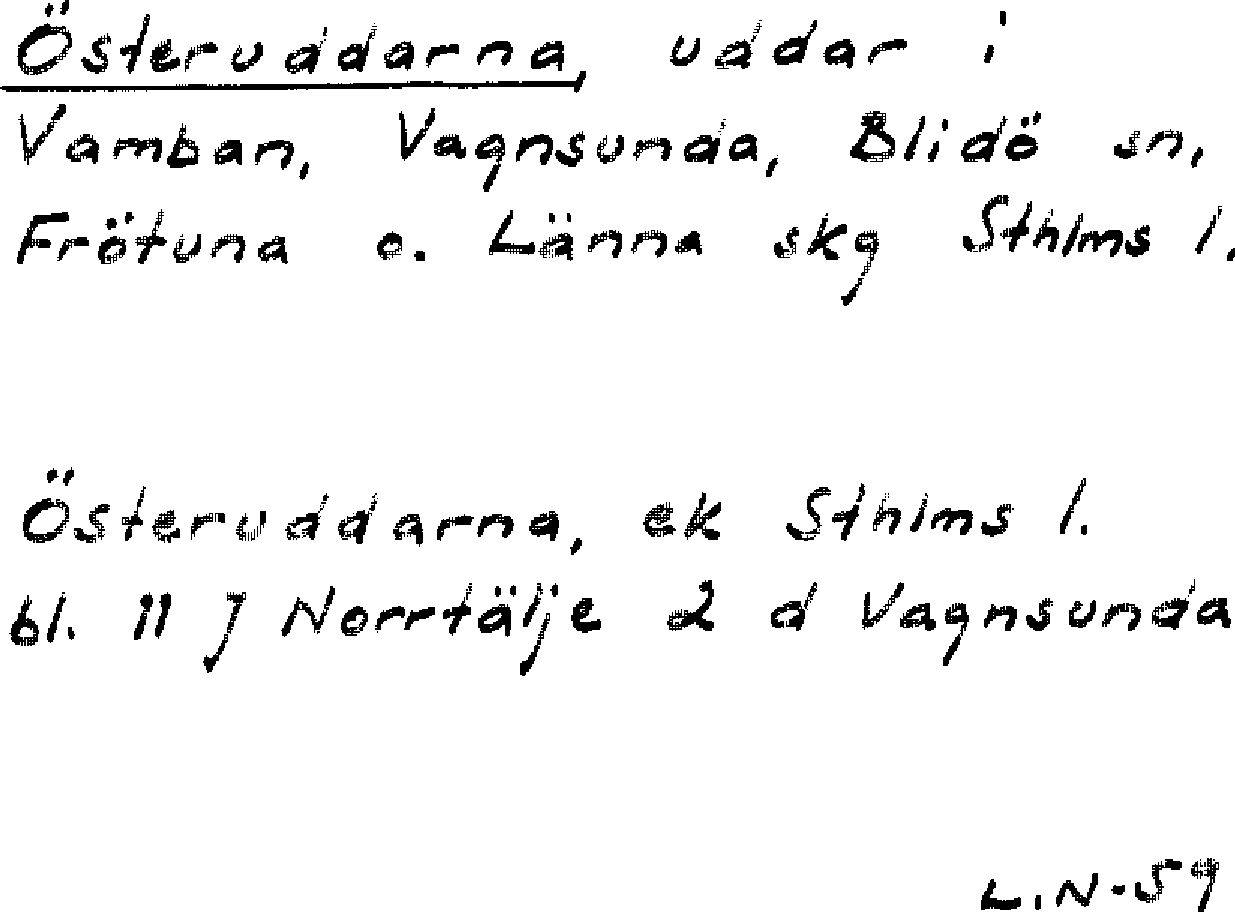 Österuddarna, uddar i
Vamban, Vagnsunda, Blidö sn,
Frötuna o. Länna skg Sthlms l.
Österuddarna, ek Sthlms l.
bl. 11 J Norrtälje 2 d Vagnsunda
L.N-59